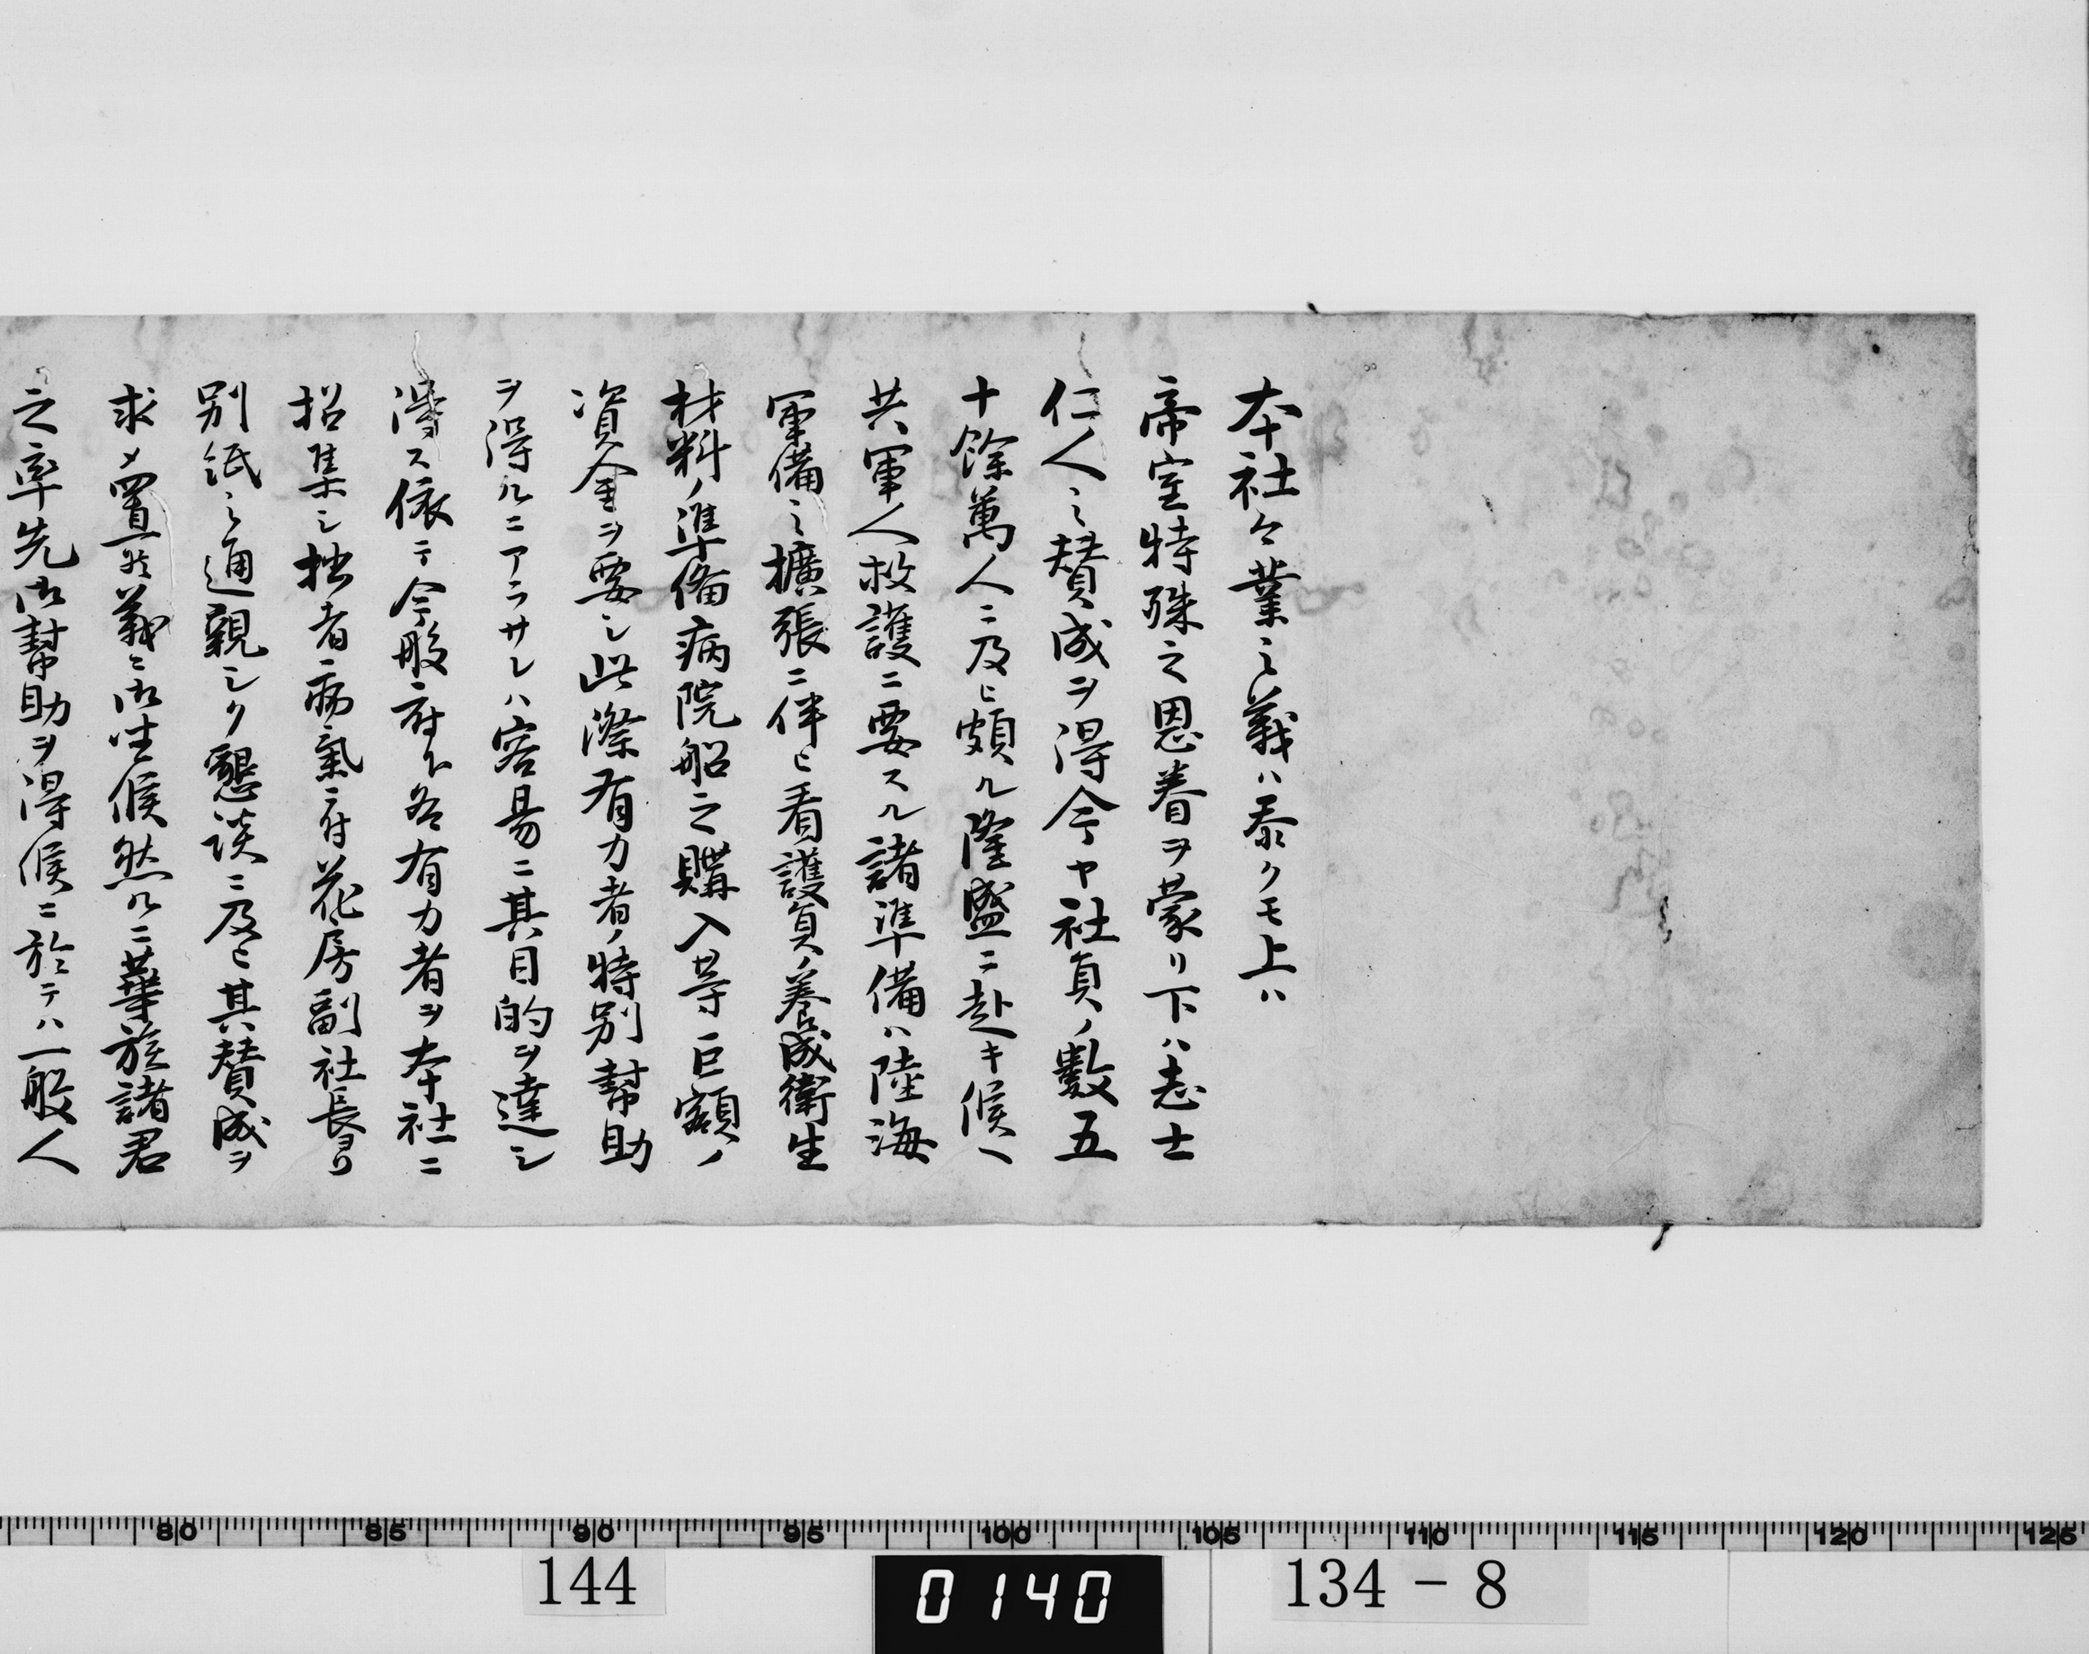 本社々業之義ハ忝クモ上ハ
帝室特殊之恩眷ヲ蒙リ下ハ志士
仁人之賛成ヲ得今ヤ社員ノ數五
十餘萬人ニ及ヒ頗ル隆盛ニ赴キ候ヘ
共軍人救護ニ要スル諸準備ハ陸海
軍備之擴張ニ伴ヒ看護員ノ養成衛生
材料ノ準備病院船之購入等巨額ノ
資金ヲ要シ此際有力者ノ特別幇助
ヲ得ルニアラサレハ容易ニ其目的ヲ達シ
得ス依テ今般府下各有力者ヲ本社ニ
招集シ拙者病氣ニ付花房副社長ヨリ
別紙之通親シク懇談ニ及ヒ其賛成ヲ
求メ置候義ニ御坐候然ルニ華族諸君
之率先御幇助ヲ得候ニ於テハ一般人
80 85 90 95 100 105 110 115 120 125
144
0140
134-8